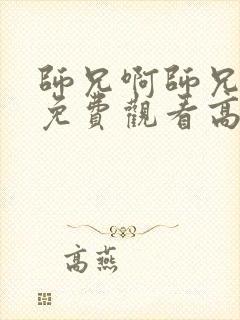 師兄啊師兄
免費觀看高
高燕